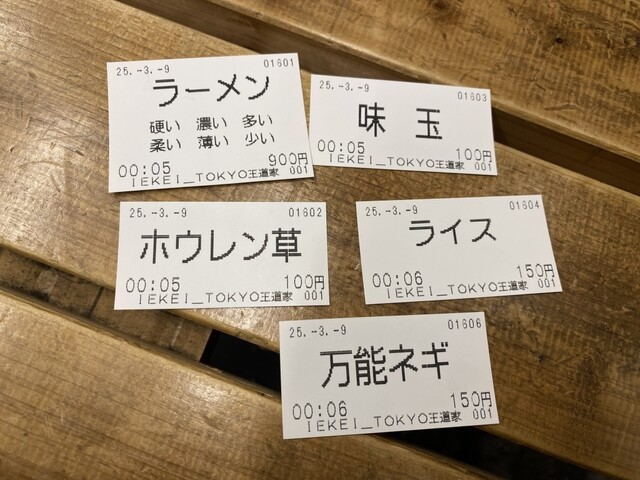 25.-3.-9 01601
ラーメン
硬い 濃い 多い
柔い 薄い 少い
00:05 900円
IEKEI_TOKYO王道家 001
25.-3.-9 01603
味 玉
00:05 100円
IEKEI_TOKYO王道家 001
25.-3.-9 01602
ホウレン草
00:05 100円
IEKEI_TOKYO王道家 001
25.-3.-9 01604
ライス
00:06 150円
IEKEI_TOKYO王道家 001
25.-3.-9 01606
万能ネギ
00:06 150円
IEKEI_TOKYO王道家 001